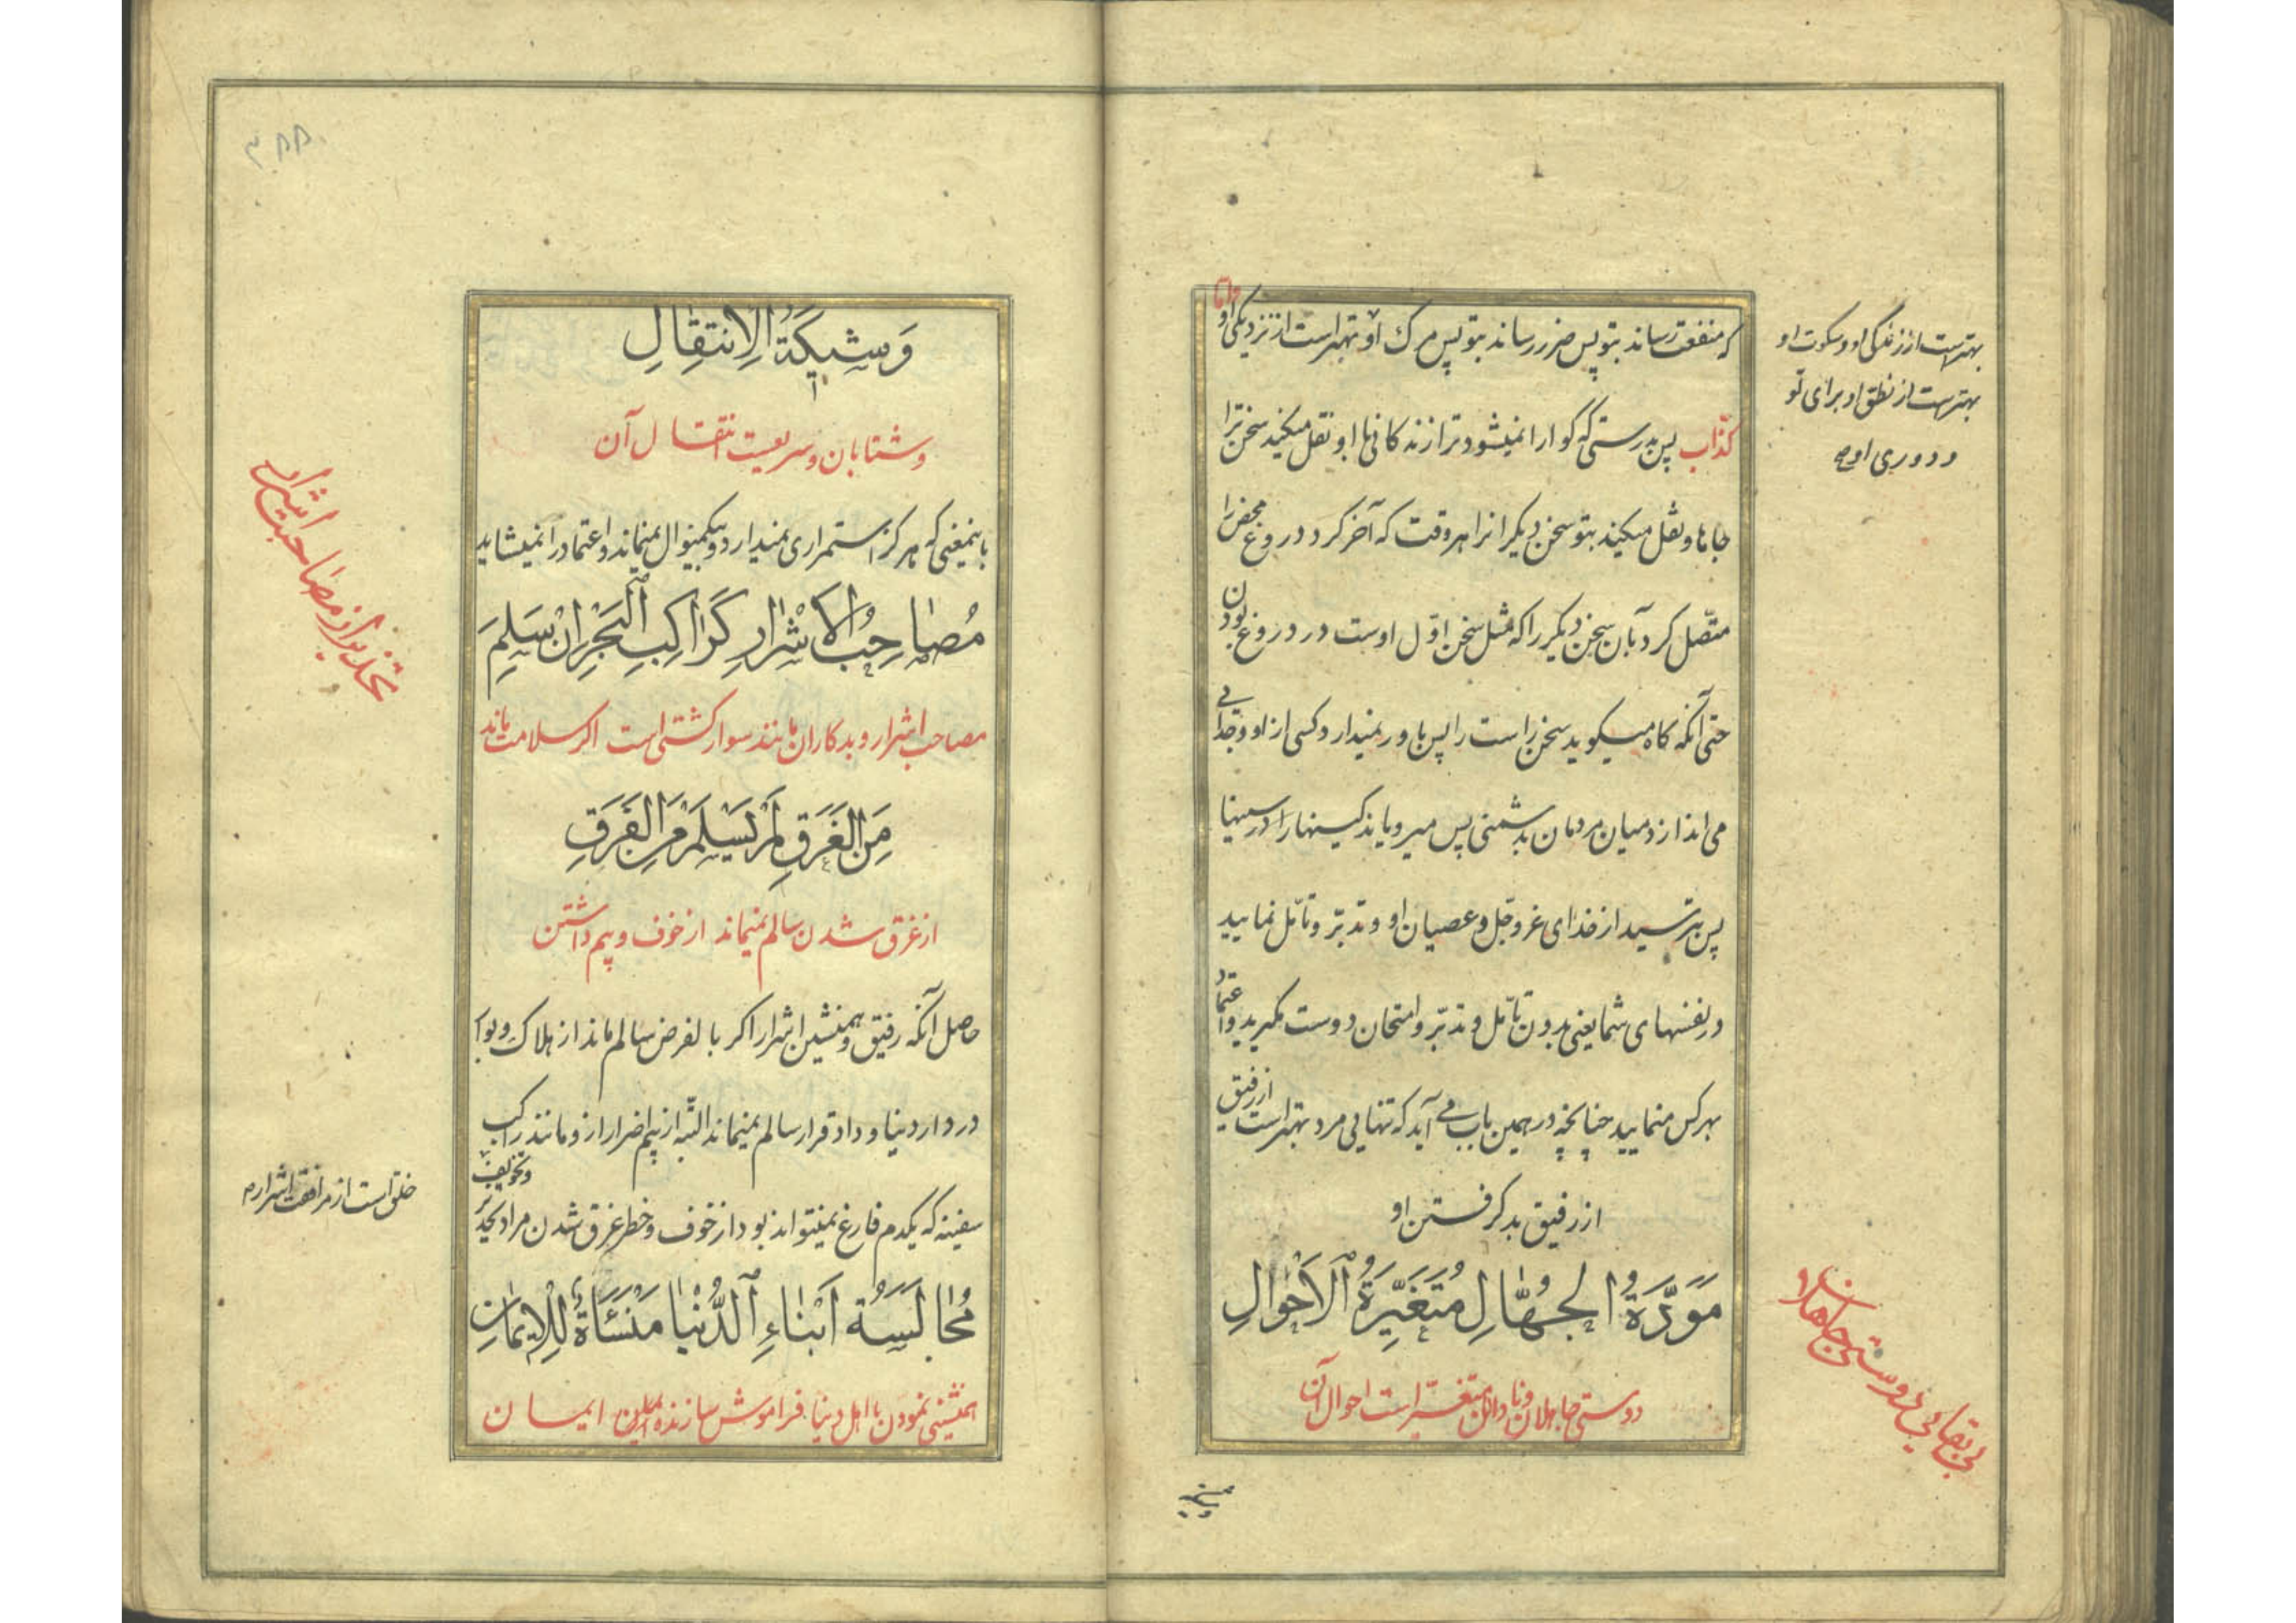 که منفعت رساند بتو پس ضرر رساند بتو پس مرک او بهتر است از نزدیکی او واما
کذّاب پس بدرستی که کوارا نمیشود ترا زندکانی با او نقل میکند سخن ترا
جاها و نقل میکند بتو سخن دیکرانرا هر وقت که آخر کرد دروغ محض را
متّصل کرد بآن سخن دیکر را که مثل سخن اوّل اوست در دروغ بودن
حتی آنکه کاه میکوید سخن راست را پس باور نمیدارد کسی از او و جدائی
می اندازد میان مردمان بدشمنی پس میرویاند کینهارا در سینها
پس بترسید از خدای عزوجل و عصیان او و تدبّر و تأمّل نمایید
در نفسهای شما یعنی بدون تأمّل و تدبّر و امتحان دوست مکیرید و اعتماد
بهر کس منمایید چنانچه در همین باب می آید که تنهایی مرد بهتر است از رفیق
از رفیق بد کرفتن او
مَوَدَّةُ الجُهّالِ مُتَغَيِّرَةُ الاَحْوالِ
دوستی جاهلان و نادانان متغیّر است احوال آن
بهتر است از زندکی او و سکوت او
بهتر است از نطق او برای تو
و دوری او
بی بقایی دوستی جاهلان
وشیکة
وَشيكَةُ الاِنتِقالِ
و شتابان و سریعست انتقال آن
باینمعنی که هرکز استمراری نمیدارد و بیکمنوال نمیماند و اعتماد را نمیشاید
مُصاحِبُ الاَشْرارِ كَراكِبِ البَحْرِ اِنْ سَلِمَ
مصاحب اشرار و بدکاران مانند سوار کشتی است اکر سلامت ماند
مِنَ الغَرَقِ لَمْ يَسْلَمْ مِنَ الفَرَقِ
از غرق شدن سالم نمیماند از خوف و بیم داشتن
حاصل آنکه رفیق و همنشین اشرار اکر بالفرض سالم ماند از هلاک و بوار
در دار دنیا و دار قرار سالم نمیماند البتّه از بیم اضرار ازو مانند راکب
سفینه که یکدم فارغ نمیتواند بود از خوف و خطر غرق شدن مراد تحذیر و تخویف
مُجالَسَة اَبْناءِ الدُّنْيا مَنْسَأَةٌ لِلاِيمانِ
همنشینی نمودن با اهل دنیا فراموش سازنده است ایمان
تحذیر از مصاحبت اشرار
خلق است از مرافقت اشرار
۳۸۸